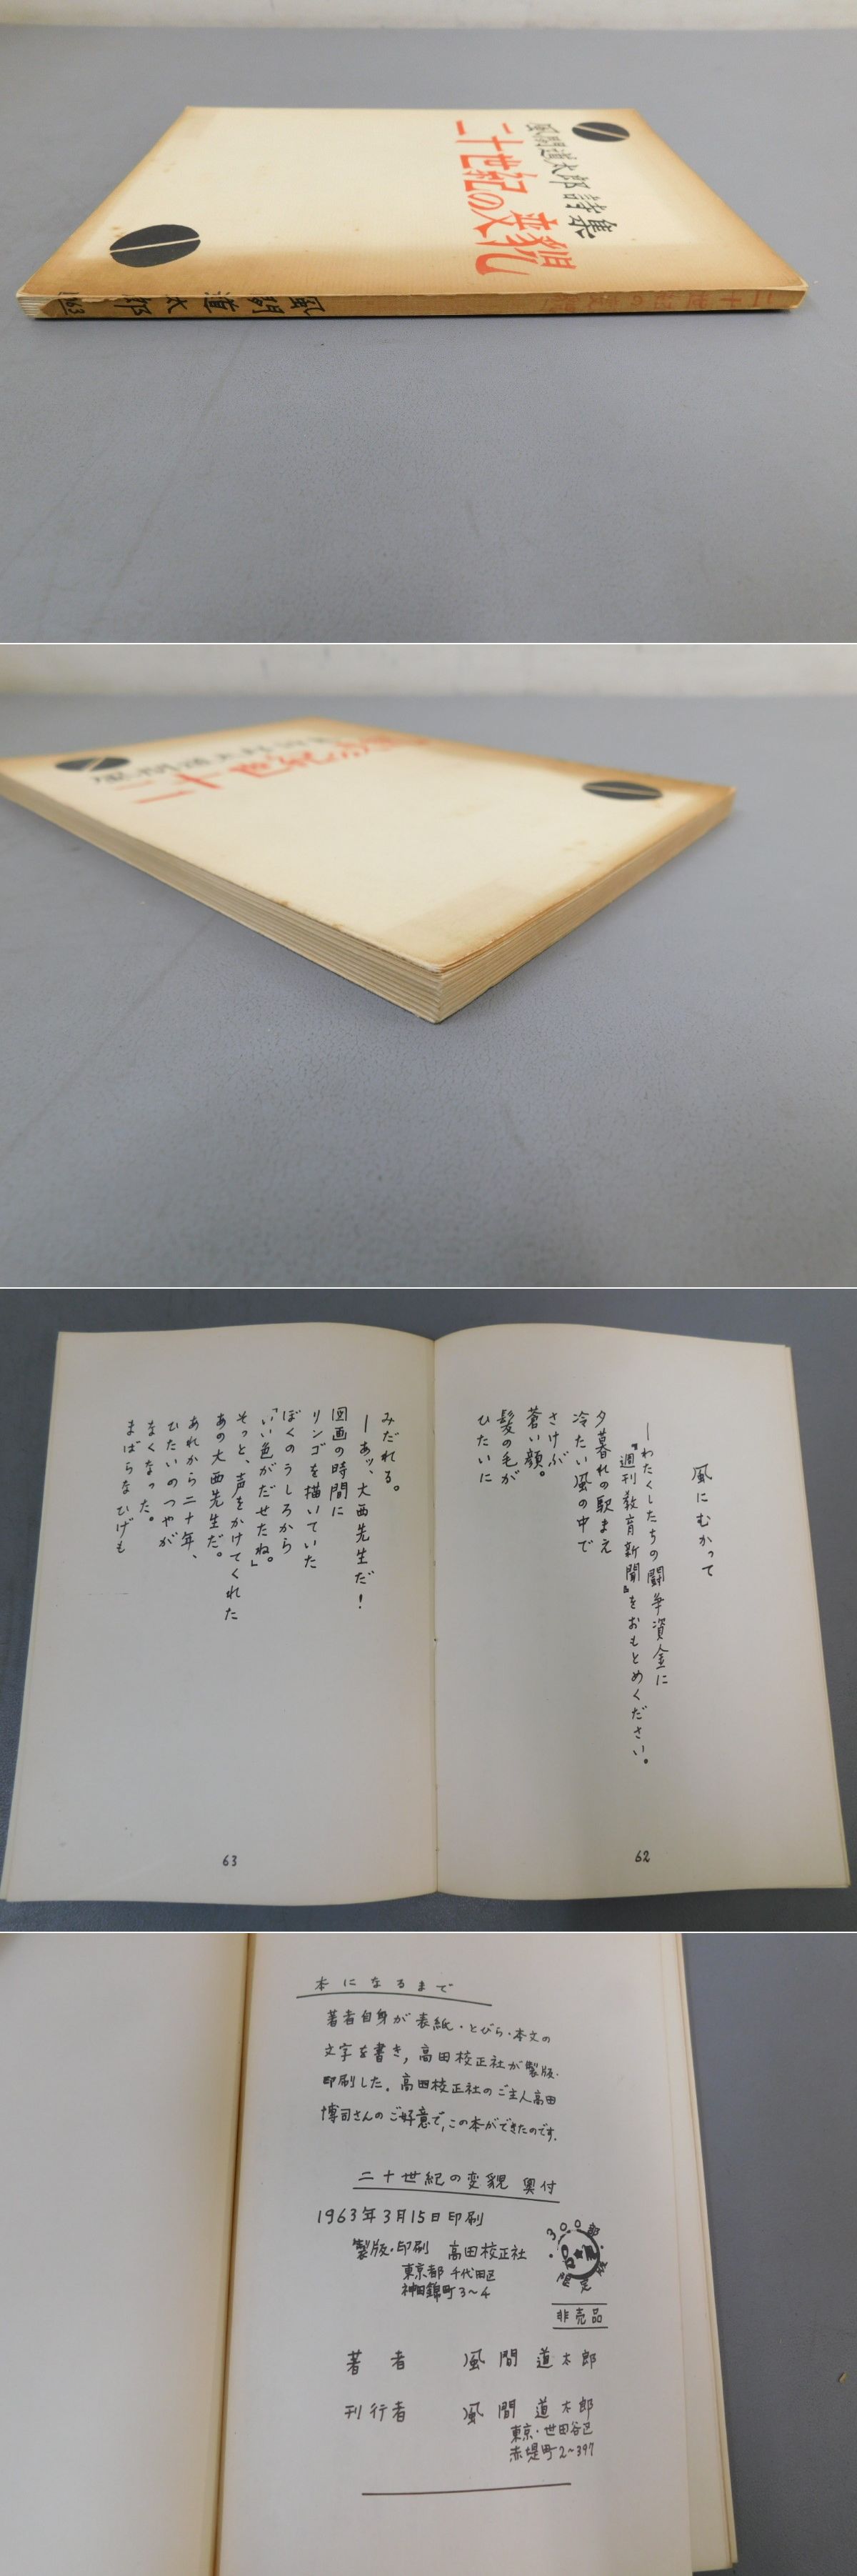 風間道太郎詩集
二十世紀の変貌
二十世紀の変貌
風間道太郎
1963
二十世紀の
風にむかって
―わたくしたちの闘争資金に
『週刊教育新聞』をおもとめください。
夕暮れの駅まえ
冷たい風の中で
さけぶ
蒼い顔。
髪の毛が
ひたいに
62
みだれる。
―あッ、大西先生だ!
図画の時間に
リンゴを描いていた
ぼくのうしろから
「いい色がだせたね。」
そっと、声をかけてくれた
あの大西先生だ。
あれから二十年、
ひたいのつやが
なくなった。
まばらなひげも
63
本になるまで
著者自身が表紙・とびら・本文の
文字を書き,高田校正社が製版・
印刷した.高田校正社のご主人高田
博司さんのご好意で,この本ができたのです.
二十世紀の変貌 奥付
1963年3月15日印刷
製版・印刷 高田校正社
東京都千代田区
神田錦町3~4
300部限定版
非売品
著者 風間道太郎
刊行者 風間道太郎
東京・世田谷区
赤堤町2~397